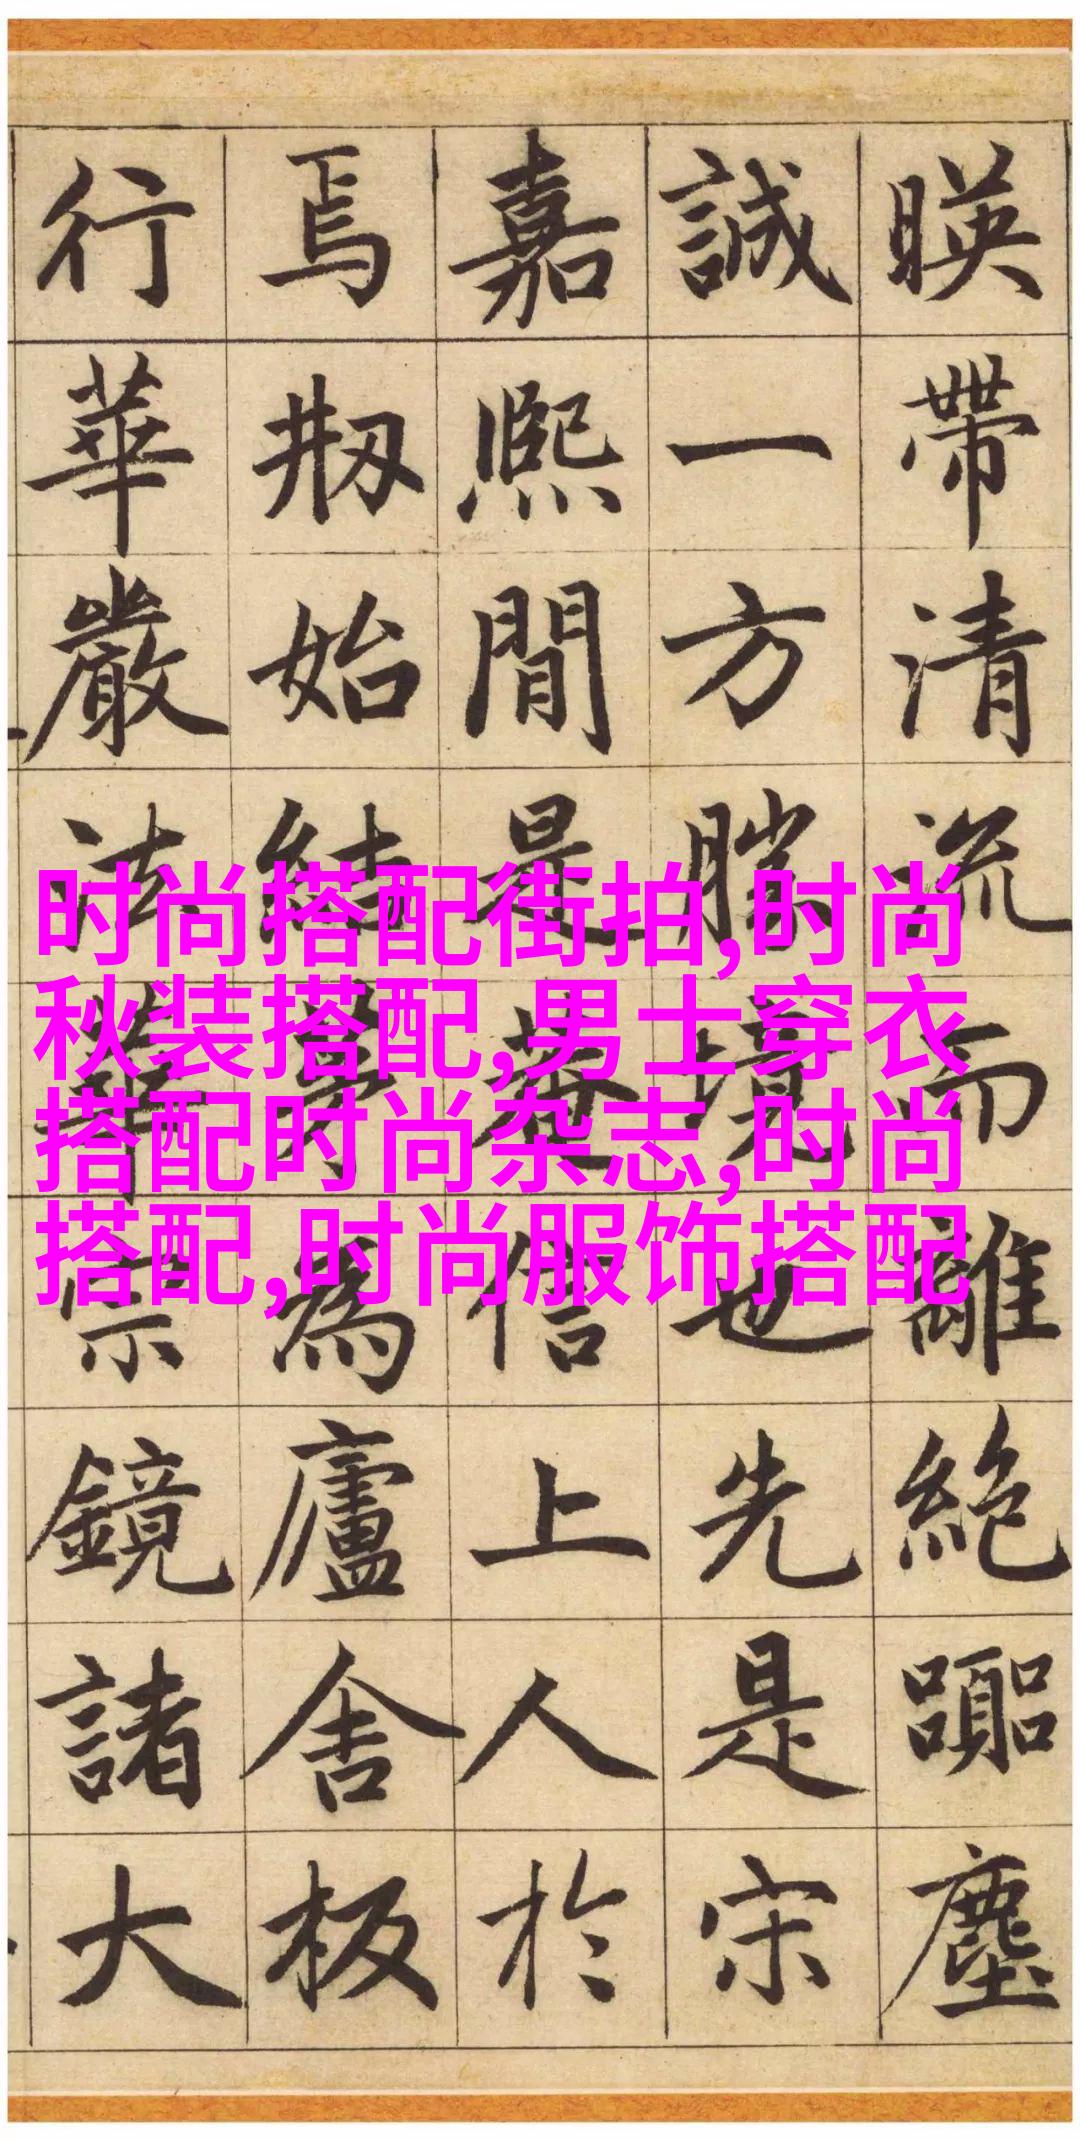 暎帶清流而離絶嚻塵
誠一方勝境也先是宋
嘉熙間是菴信上人於
焉刱始結茅為廬舍板
行華嚴法華宗鏡諸大
时尚搭配街拍,时尚
秋装搭配,男士穿衣
搭配时尚杂志,时尚
搭配,时尚服饰搭配